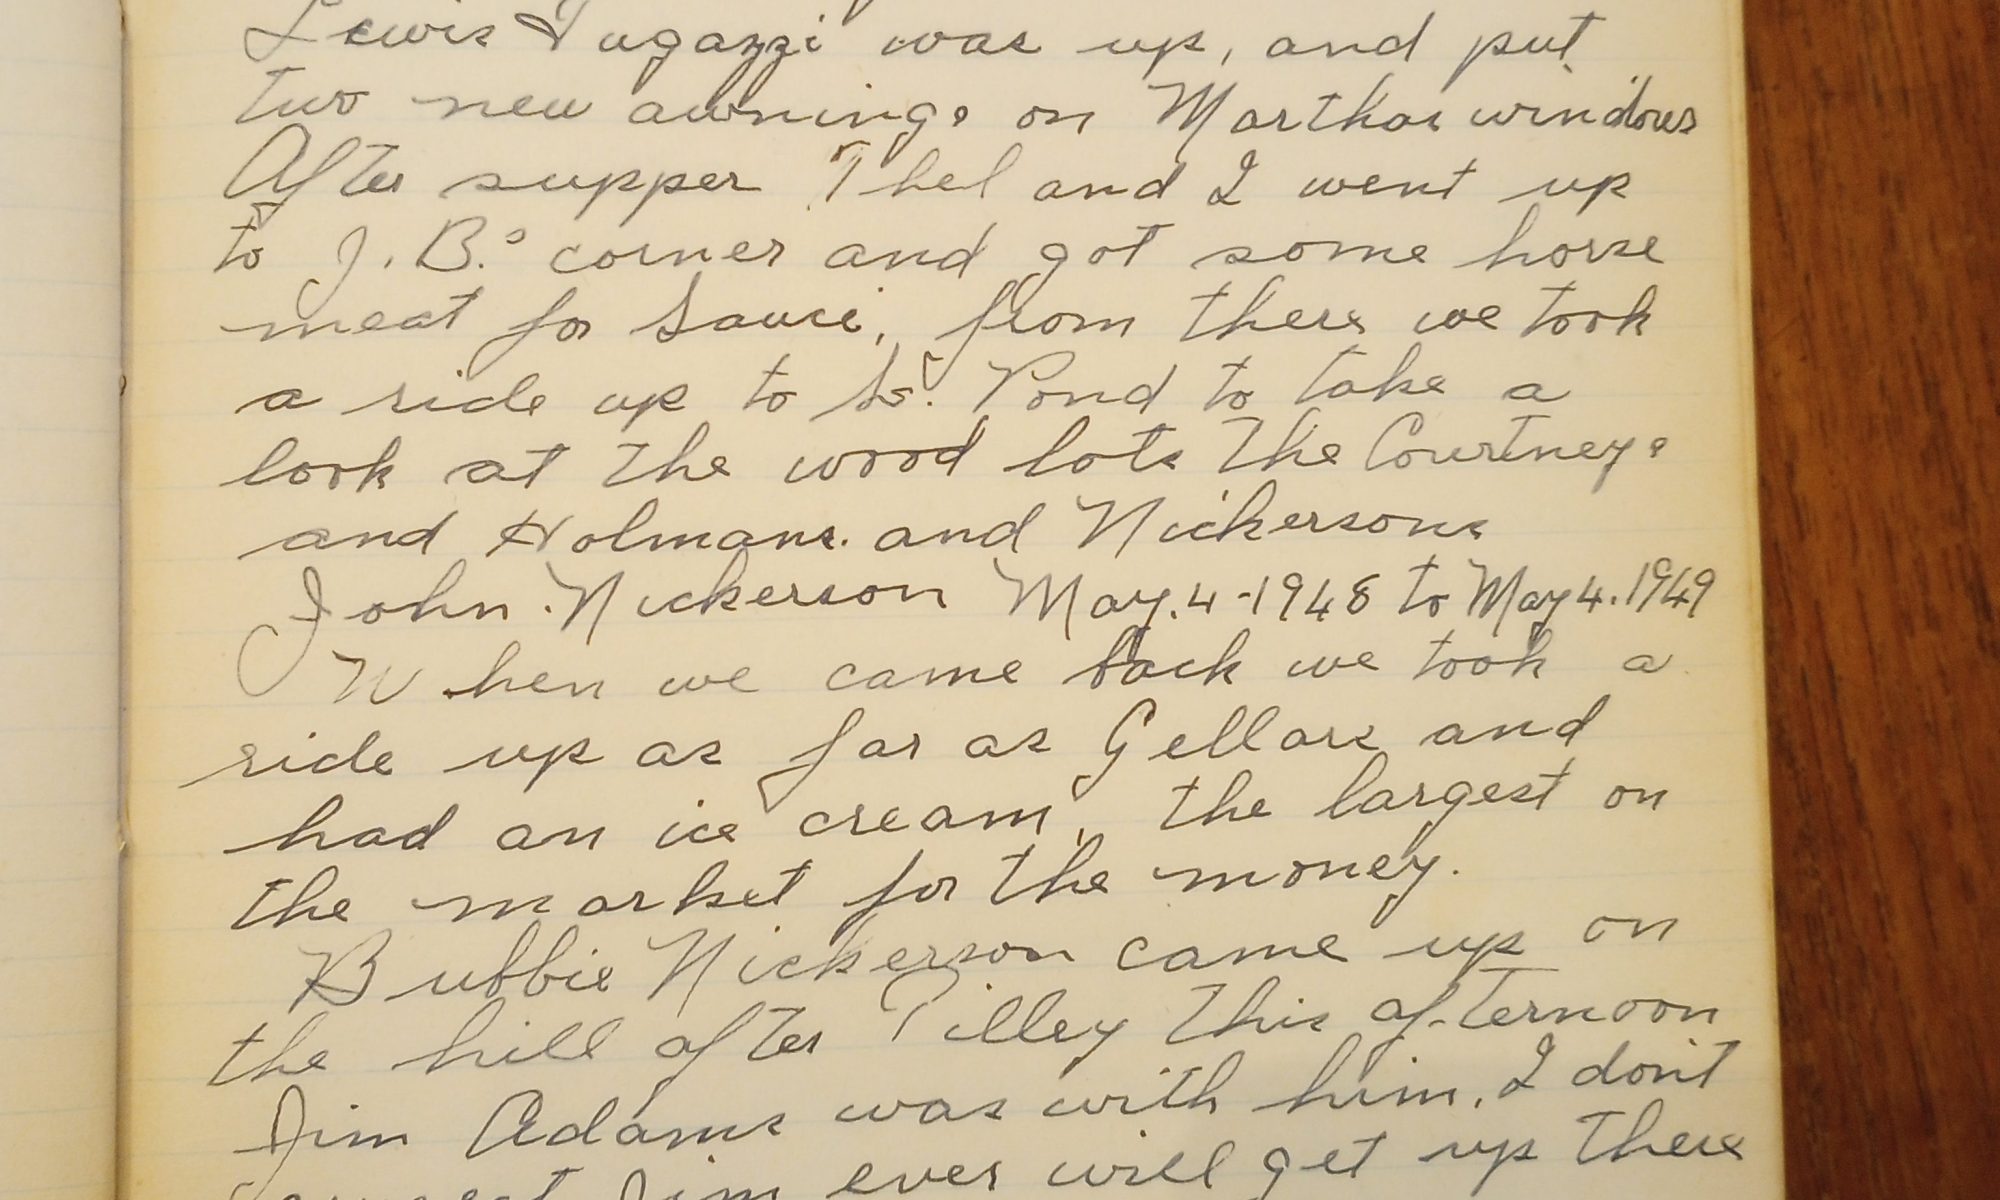 Lewis Fugazzi was up, and put
two new awnings on Marthas windows
After supper Thel and I went up
to J. B.s corner and got some horse
meat for
from there we took
a ride up to So. Pond to take a
look at the wood lots the Courtneys
and Holmans. and Nickersons
John Nickerson May. 4 - 1948 to May 4. 1949
When we came back we took a
ride up as far as Gellars and
had an ice cream, the largest on
the market for the money.
Bubbie Nickerson came up on
the hill after Tilley this afternoon
Jim Adams was with him. I don't
Jim ever will get up there